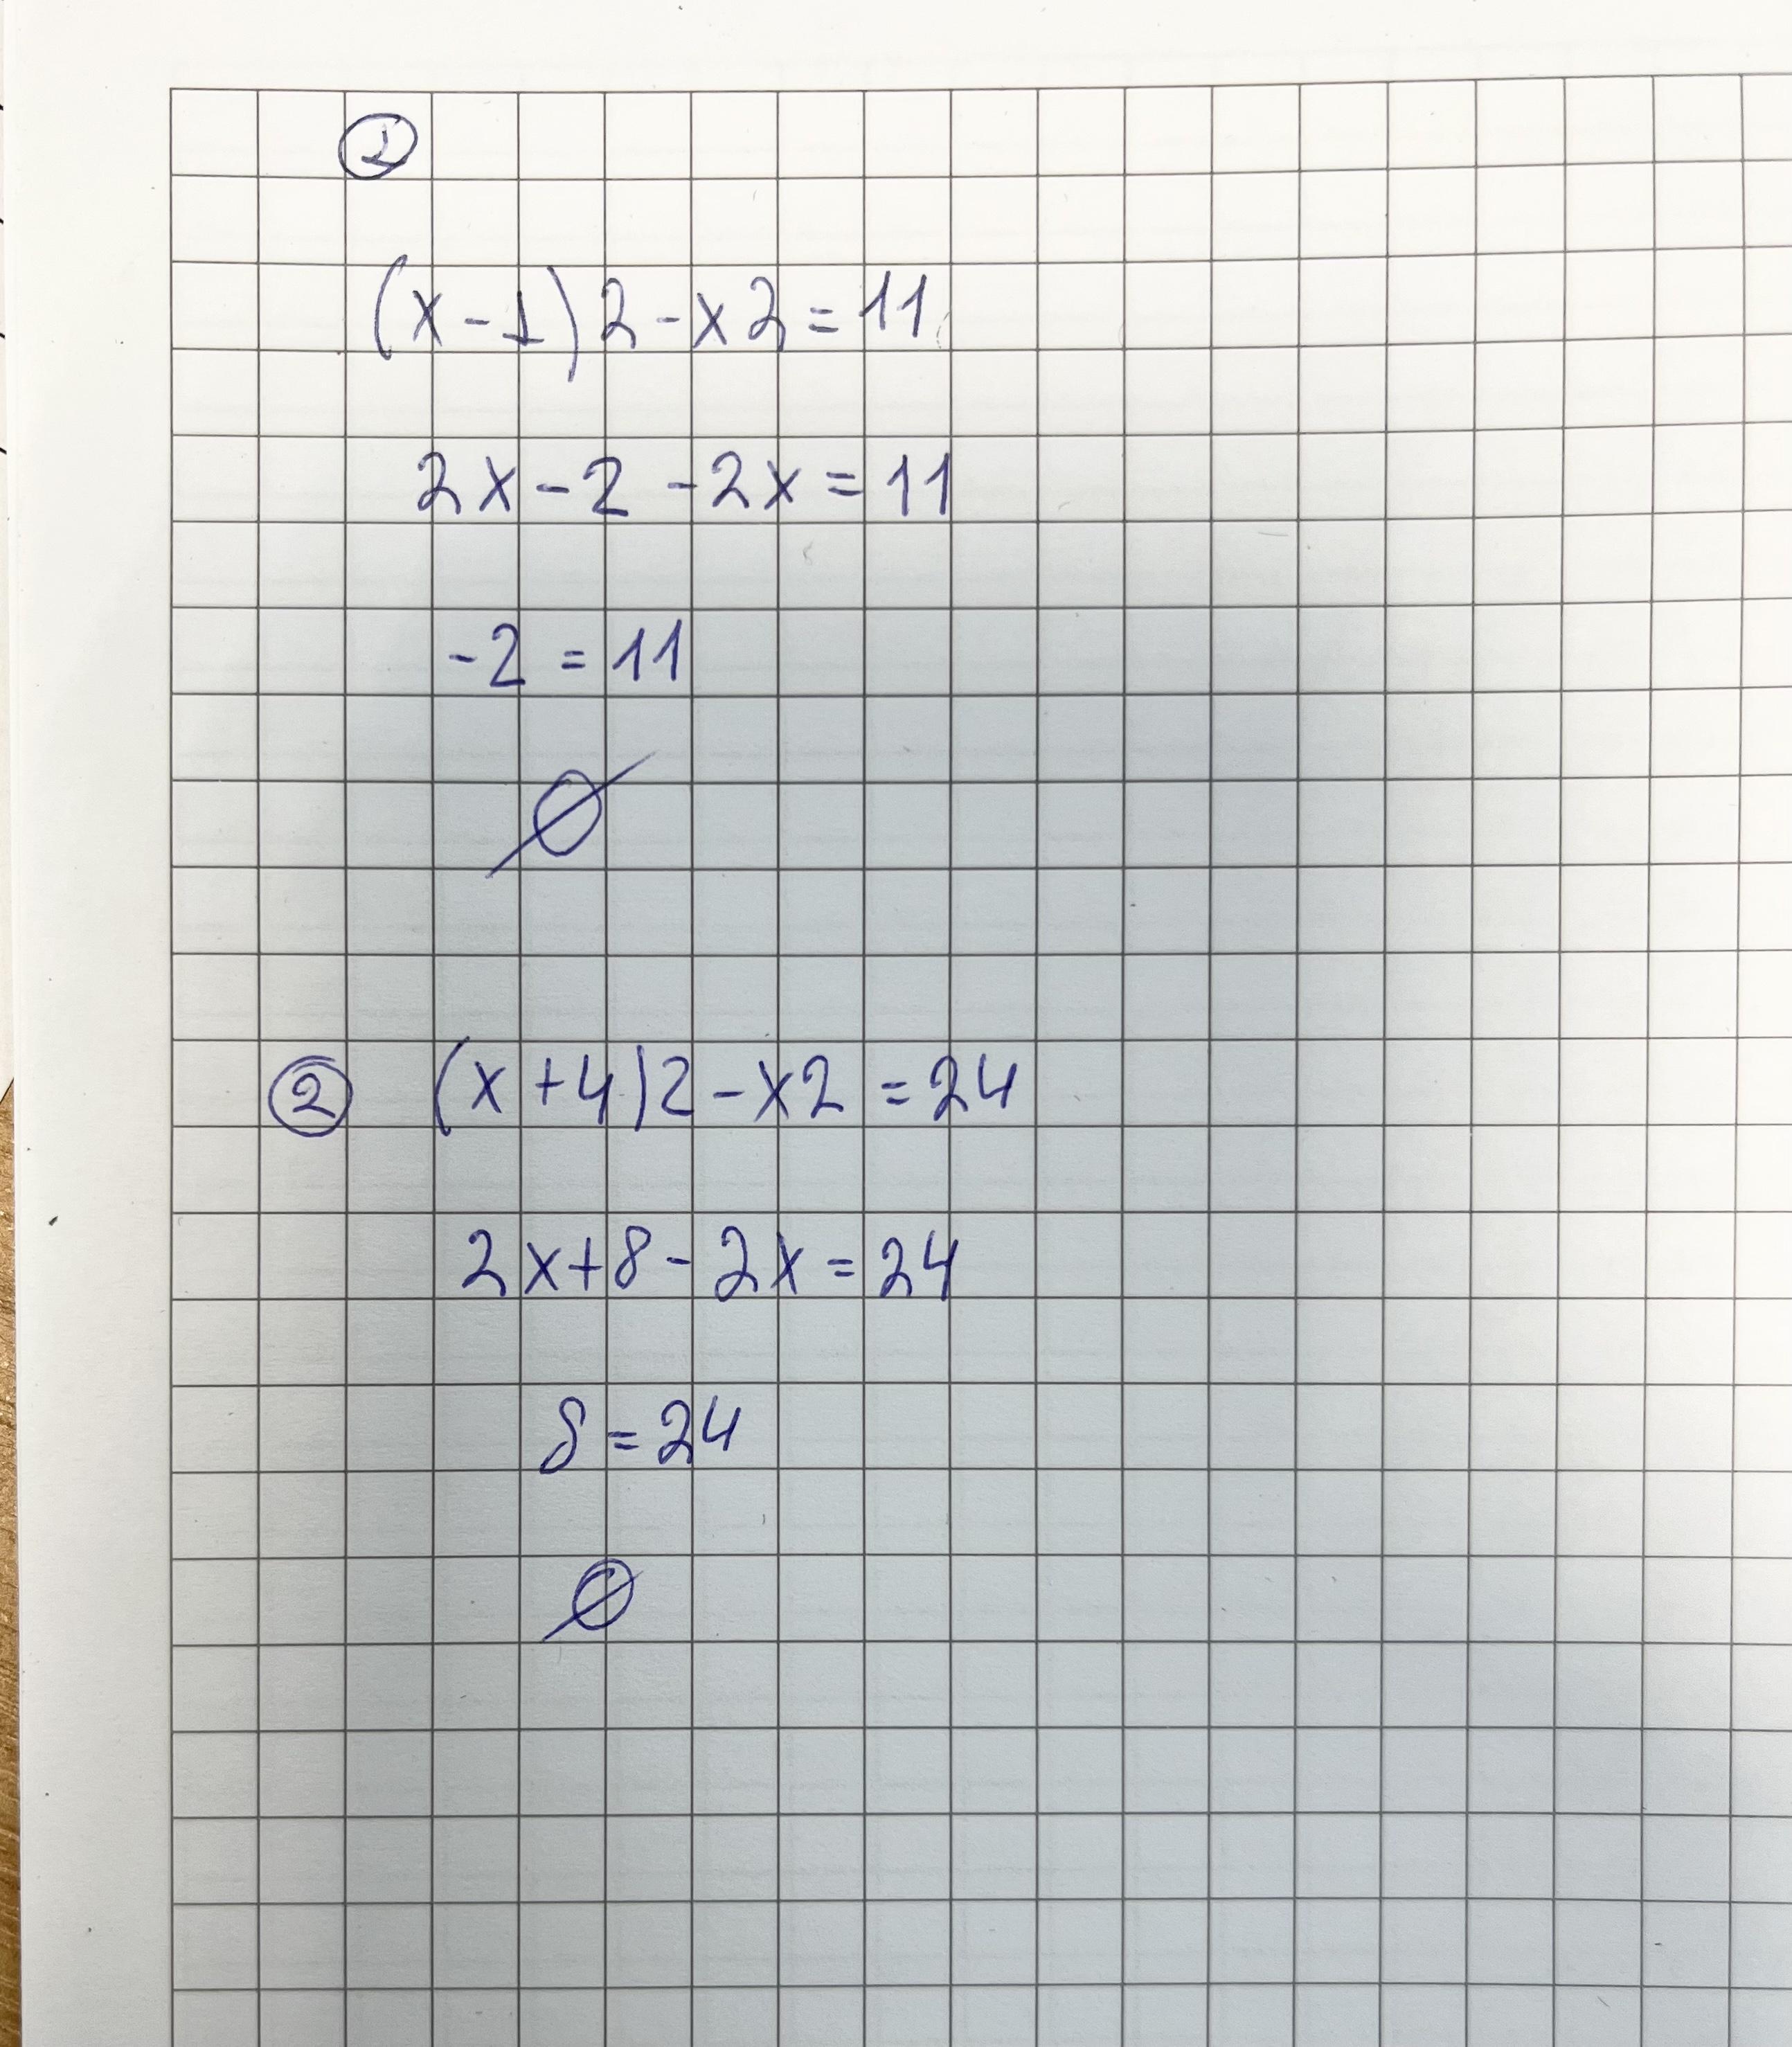 ①
(x-1)2-x2=11
2x-2-2x=11
-2=11
∅
② (x+4)2-x2=24
2x+8-2x=24
8=24
∅